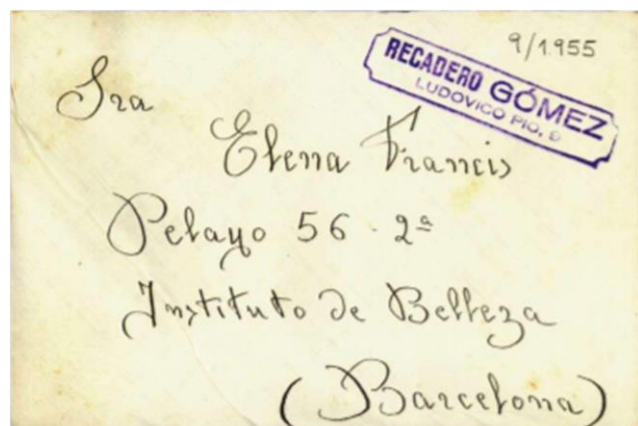 9/1955
RECADERO GÓMEZ
LUDOVICO PIO, 9
Sra
Elena Francis
Pelayo 56 - 2ª
Instituto de Belleza
(Barcelona)